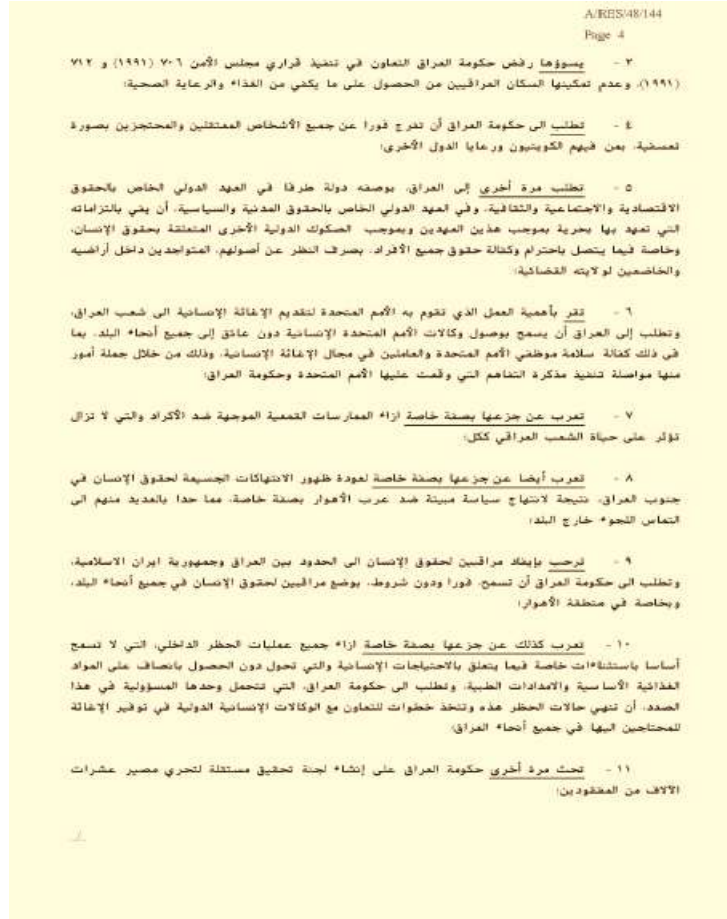 A/RES/48/144
Page 4
٣ - يسوؤها رفض حكومة العراق التعاون في تنفيذ قراري مجلس الأمن ٧٠٦ (١٩٩١) و ٧١٢
(١٩٩١)، وعدم تمكينها السكان العراقيين من الحصول على ما يكفي من الغذاء والرعاية الصحية؛
٤ - تطلب الى حكومة العراق أن تفرج فورا عن جميع الأشخاص المعتقلين والمحتجزين بصورة
تعسفية، بمن فيهم الكويتيون ورعايا الدول الأخرى؛
٥ - تطلب مرة أخرى إلى العراق، بوصفه دولة طرفا في العهد الدولي الخاص بالحقوق
الاقتصادية والاجتماعية والثقافية، وفي العهد الدولي الخاص بالحقوق المدنية والسياسية، أن يفي بالتزاماته
التي تعهد بها بحرية بموجب هذين العهدين وبموجب الصكوك الدولية الأخرى المتعلقة بحقوق الإنسان،
وخاصة فيما يتصل باحترام وكفالة حقوق جميع الأفراد، بصرف النظر عن أصولهم، المتواجدين داخل أراضيه
والخاضعين لولايته القضائية؛
٦ - تقر بأهمية العمل الذي تقوم به الأمم المتحدة لتقديم الإغاثة الإنسانية الى شعب العراق،
وتطلب إلى العراق أن يسمح بوصول وكالات الأمم المتحدة الإنسانية دون عائق إلى جميع أنحاء البلد، بما
في ذلك كفالة سلامة موظفي الأمم المتحدة والعاملين في مجال الإغاثة الإنسانية، وذلك من خلال جملة أمور
منها مواصلة تنفيذ مذكرة التفاهم التي وقعت عليها الأمم المتحدة وحكومة العراق؛
٧ - تعرب عن جزعها بصفة خاصة ازاء الممارسات القمعية الموجهة ضد الأكراد والتي لا تزال
تؤثر على حياة الشعب العراقي ككل؛
٨ - تعرب أيضا عن جزعها بصفة خاصة لعودة ظهور الانتهاكات الجسيمة لحقوق الإنسان في
جنوب العراق، نتيجة لانتهاج سياسة مبيتة ضد عرب الأهوار بصفة خاصة، مما حدا بالعديد منهم الى
التماس اللجوء خارج البلد؛
٩ - ترحب بإيفاد مراقبين لحقوق الإنسان الى الحدود بين العراق وجمهورية ايران الاسلامية،
وتطلب الى حكومة العراق أن تسمح، فورا ودون شروط، بوضع مراقبين لحقوق الإنسان في جميع أنحاء البلد،
وبخاصة في منطقة الأهوار؛
١٠ - تعرب كذلك عن جزعها بصفة خاصة ازاء جميع عمليات الحظر الداخلي، التي لا تسمح
أساسا باستثناءات خاصة فيما يتعلق بالاحتياجات الإنسانية والتي تحول دون الحصول بانصاف على المواد
الغذائية الأساسية والامدادات الطبية، وتطلب الى حكومة العراق، التي تتحمل وحدها المسؤولية في هذا
الصدد، أن تنهي حالات الحظر هذه وتتخذ خطوات للتعاون مع الوكالات الإنسانية الدولية في توفير الإغاثة
للمحتاجين اليها في جميع أنحاء العراق؛
١١ - تحث مرة أخرى حكومة العراق على إنشاء لجنة تحقيق مستقلة لتحري مصير عشرات
الآلاف من المفقودين؛
/..